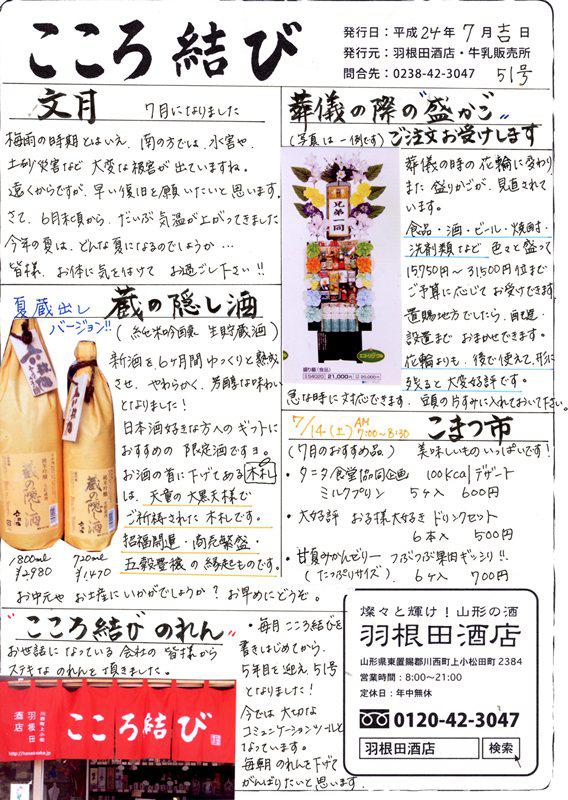 こころ結び
発行日：平成24年7月吉日
発行元：羽根田酒店・牛乳販売所
問合先：0238-42-3047
51号
文月 7月になりました
梅雨の時期とはいえ、南の方では、水害や、
土砂災害など大変な被害が出ていますね。
遠くからですが、早い復旧を願いたいと思います。
さて、6月末頃から、だいぶ気温が上がってきました
今年の夏は、どんな夏になるのでしょうか…
皆様、お体に気をつけて お過ごし下さい!!
葬儀の際の"盛かご"
(写真は一例です) ご注文お受けします
葬儀の時の花輪に変わり
また盛りかごが、見直されて
います。
食品・酒・ビール・焼酎・
洗剤類など 色々と盛って
15750円〜31500円位まで
ご予算に応じてお受けできます。
置賜地方でしたら、配達・
設置まで おまかせできます。
花輪よりも、後で使えて、形に
残ると大変好評です。
急な時に対応できます。頭の片すみに入れておいて下さい。
兄弟一同
21,000円
夏蔵出し
バージョン!!
蔵の隠し酒
(純米吟醸 生貯蔵酒)
新酒を6ヶ月間ゆっくりと熟成
させ、やわらかく、芳醇な味わい
となりました!
日本酒好きな方へのギフトに
おすすめの 限定酒ですヨ。
お酒の首に下げてある木札
は、天童の大黒天様で
ご祈祷された 木札です。
招福開運・商売繁盛・
五穀豊穣の縁起ものです。
蔵の隠し酒
蔵の隠し酒
1800ml
¥2980
720ml
¥1470
お中元や お土産に いかがでしょうか？ お早めにどうぞ。
7/14(土) AM 7:00〜8:30 こまつ市
(7月のおすすめ品) 美味しいものいっぱいです!
・タニタ食堂協同企画 100Kcalデザート
ミルクプリン 5ヶ入 600円
・大好評 お子様大好き ドリンクセット
6本入 500円
・甘夏みかんゼリー つぶつぶ果肉ギッシリ!!
(たっぷりサイズ) 6ヶ入 700円
"こころ結び のれん"
お世話になっている会社の皆様から
ステキなのれんを頂きました。
川西町上小松
羽根田
酒店
こころ結び
・毎月こころ結びを
書きはじめてから、
5年目を迎え51号
となりました!
今では 大切な
コミュニケーションツールと
なっています。
毎朝のれんを下げて
がんばりたいと思います。
燦々と輝け！山形の酒
羽根田酒店
山形県東置賜郡川西町上小松田町2384
営業時間：8:00〜21:00
定休日：年中無休
0120-42-3047
羽根田酒店 検索